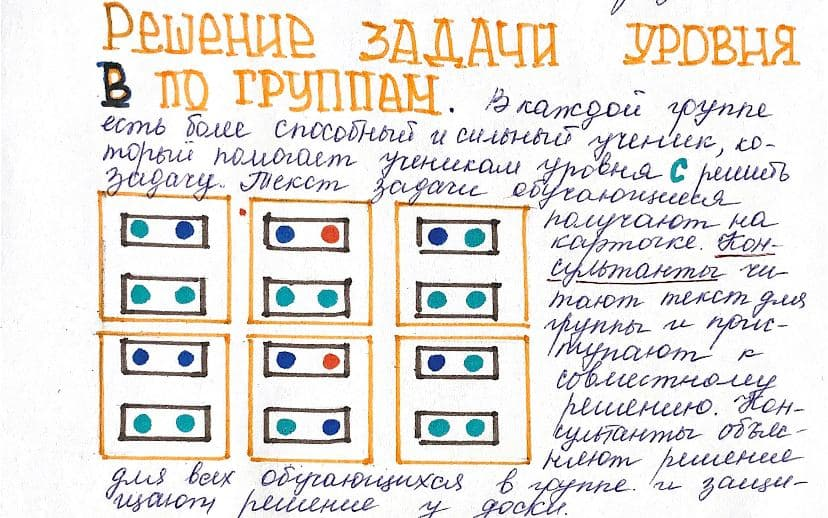 Решение задачи уровня
В по группам. В каждой группе
есть более способный и сильный ученик, ко-
торый помогает ученикам уровня С решить
задачу. Текст задачи обучающиеся
получают на
карточке. Кон-
сультанты чи-
тают текст для
группы и прис-
тупают к
совместному
решению. Кон-
сультанты объяс-
няют решение
для всех обучающихся в группе и защи-
щают решение у доски.